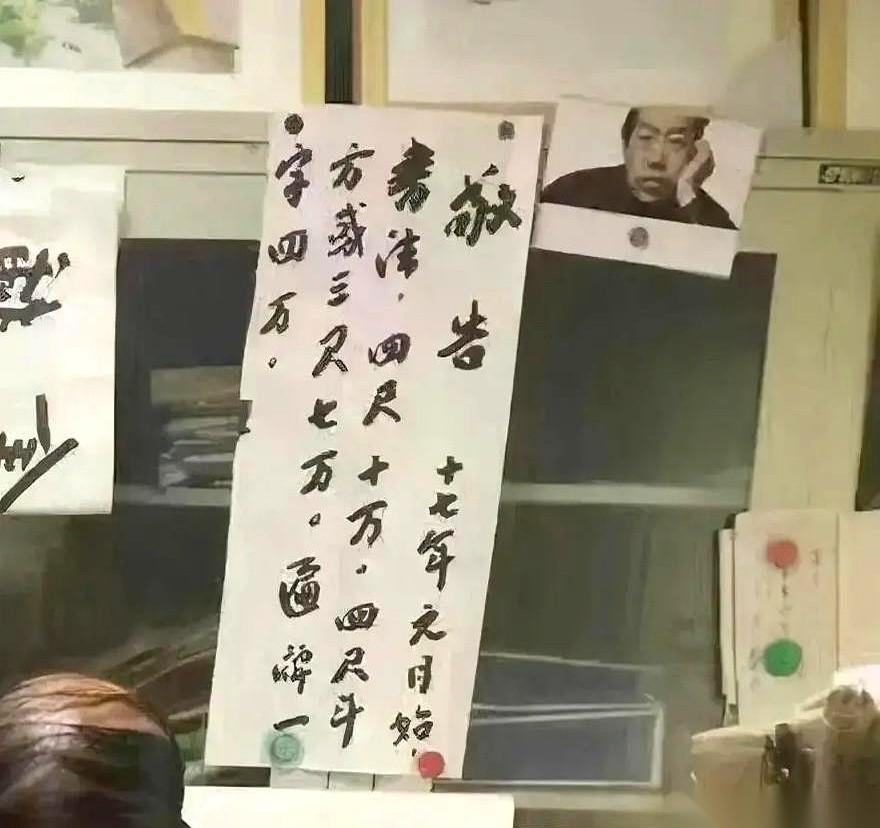 敬告 十七年元月始,
書法,四尺十万。四尺斗
方或三尺七万。匾牌一
字四万。